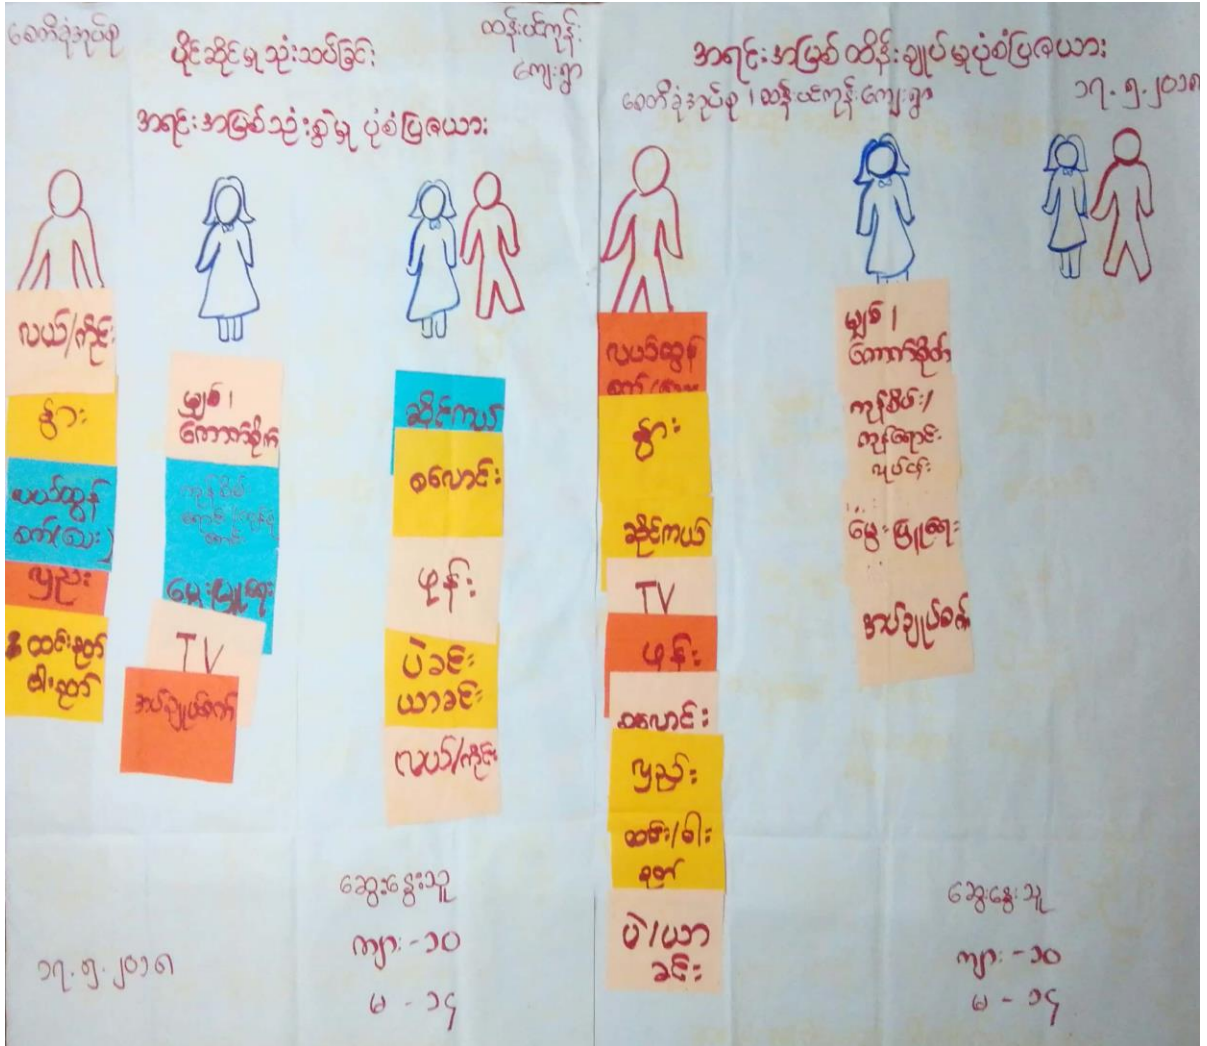 စေတီခုံအုပ်စု
ပိုင်ဆိုင်မှုသုံးသပ်ခြင်း
ထန်းပင်ကုန်း
ကျေးရွာ
အရင်းအမြစ်သုံးစွဲမှု ပုံစံပြဇယား
လယ်/ကိုင်း
နွား
လယ်ထွန်
စက်(သေး)
လှည်း
ထင်းခုတ်
ဝါးခုတ်
မျှစ်၊
ကောက်စိုက်
မွေးမြူရေး
TV
အပ်ချုပ်စက်
ဆိုင်ကယ်
စလောင်း
ဖုန်း
ပဲခင်း
ယာခင်း
လယ်/ကိုင်း
ဆွေးနွေးသူ
ကျား - ၁၀
မ - ၁၄
၁၇.၅.၂၀၁၈
အရင်းအမြစ်ထိန်းချုပ်မှုပုံစံပြဇယား
စေတီခုံအုပ်စု၊ထန်းပင်ကုန်းကျေးရွာ
၁၇.၅.၂၀၁၈
လယ်ထွန်
နွား
ဆိုင်ကယ်
TV
ဖုန်း
စလောင်း
လှည်း
ထင်း/ဝါး
ခုတ်
ပဲ/ယာ
ခင်း
မျှစ်၊
ကောက်စိုက်
ကုန်စိမ်း/
ကုန်ရောင်း
လုပ်ငန်း
မွေးမြူရေး
အပ်ချုပ်စက်
ဆွေးနွေးသူ
ကျား - ၁၀
မ - ၁၄